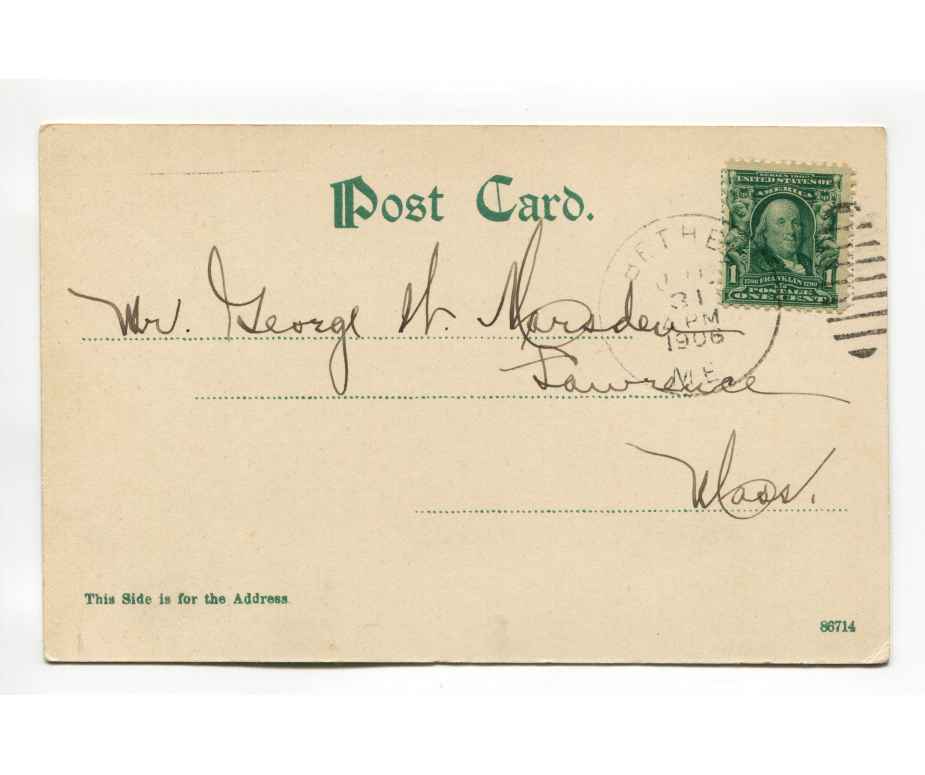 Post Card.
SERIES 1902
UNITED STATES OF
AMERICA
1 FRANKLIN 1
POSTAGE
ONE CENT
BETHE
31
PM
1906
ME
Mr. George W. Marsden
Lawrence
Mass.
This Side is for the Address.
86714